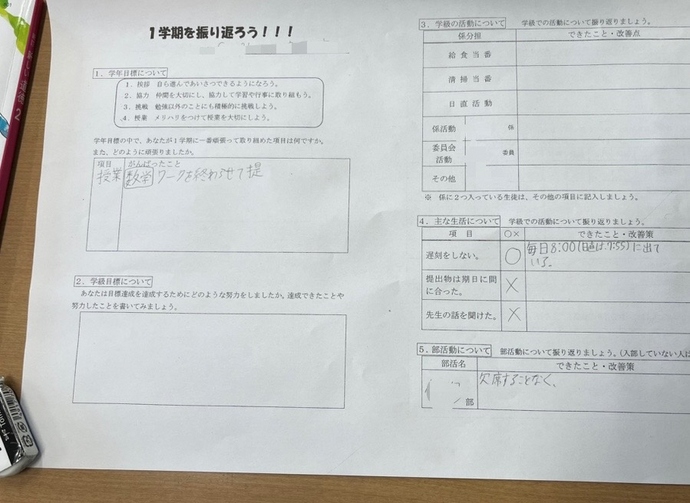 1学期を振り返ろう！！！
1．学年目標について
1．挨拶　自ら進んであいさつできるようになろう。
2．協力　仲間を大切にし、協力して学習や行事に取り組もう。
3．挑戦　勉強以外のことにも積極的に挑戦しよう。
4．授業　メリハリをつけて授業を大切にしよう。
学年目標の中で、あなたが1学期に一番頑張って取り組めた項目は何ですか。
また、どのように頑張りましたか。
項目　がんばったこと
授業　数学 ワークを終わらせて提
2．学級目標について
あなたは目標達成を達成するためにどのような努力をしましたか。達成できたことや
努力したことを書いてみましょう。
3．学級の活動について　学級での活動について振り返りましょう。
係分担　できたこと・改善点
給食当番
清掃当番
日直活動
係活動　係
委員会
活動　委員
その他
※ 係に2つ入っている生徒は、その他の項目に記入しましょう。
4．主な生活について　学級での活動について振り返りましょう。
項目　○×　できたこと・改善策
遅刻をしない。　○　毎日8:00(日直は7:55)に出て
いる。
提出物は期日に間
に合った。　×
先生の話を聞けた。　×
5．部活動について　部活動について振り返りましょう。(入部していない人は
部活名　できたこと・改善策
部　欠席することなく、